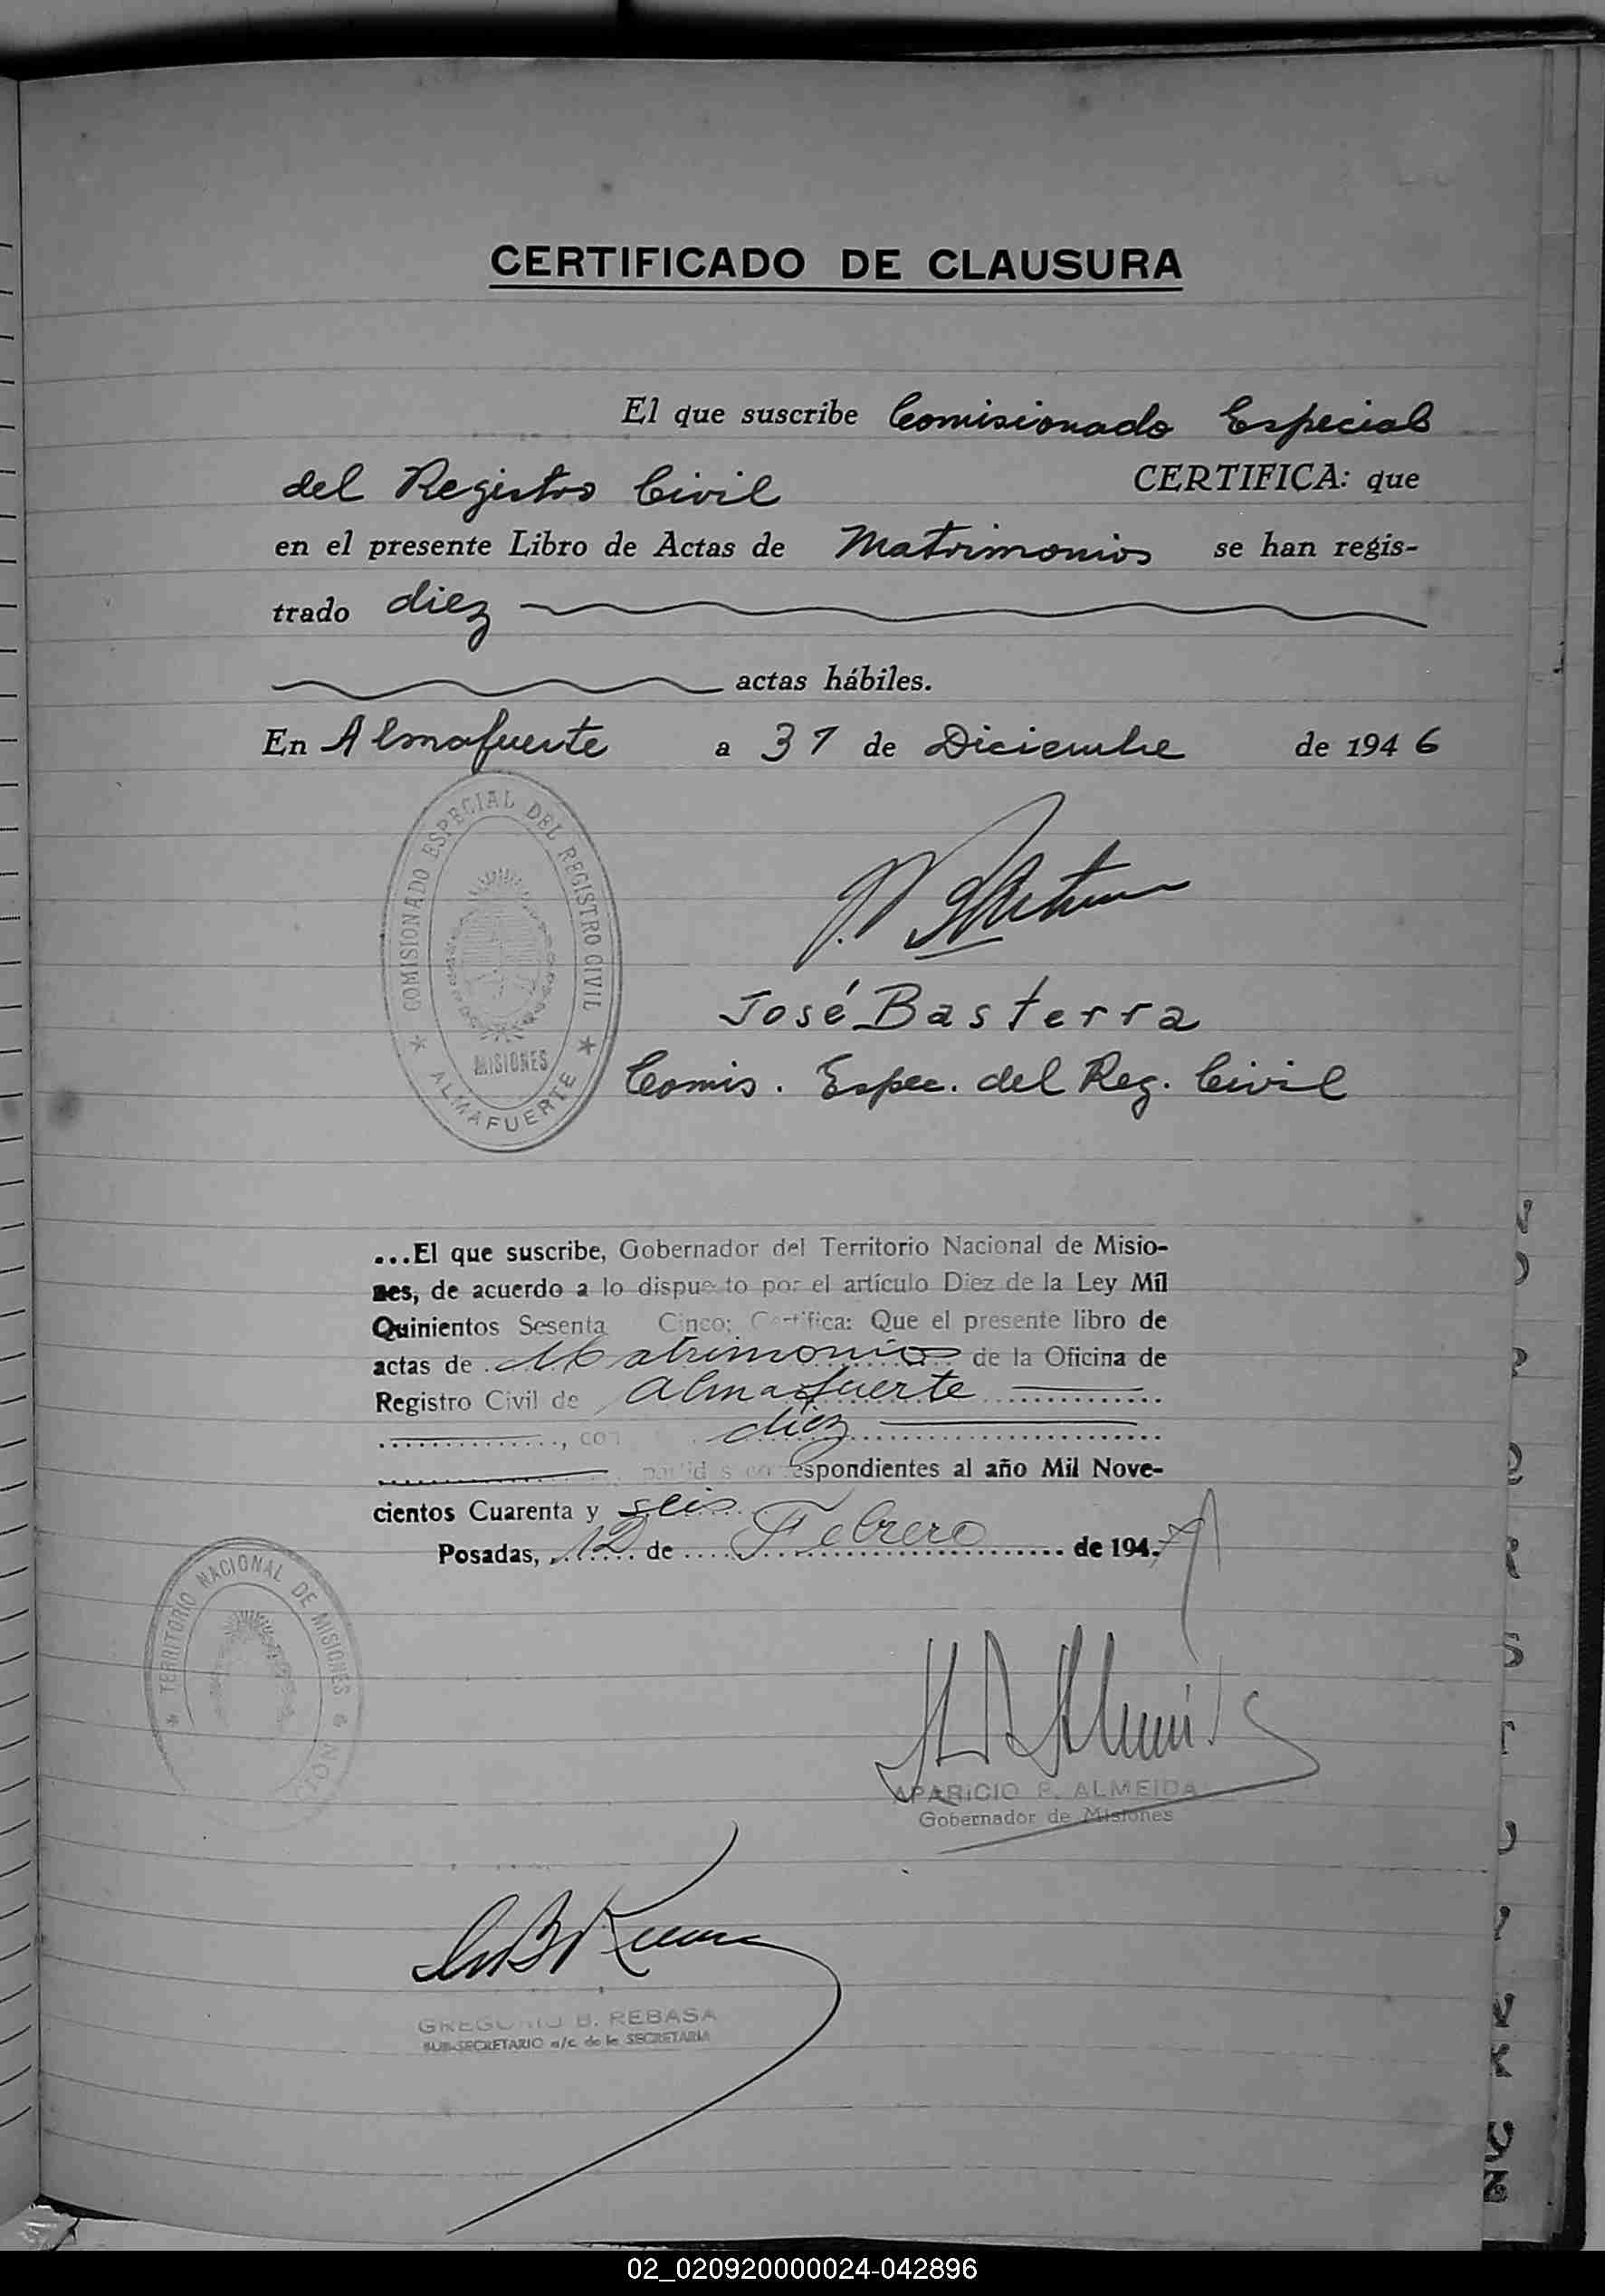 CERTIFICADO DE CLAUSURA
El que suscribe Comisionado Especial
del Registro Civil CERTIFICA: que
en el presente Libro de Actas de Matrimonios se han regis-
trado diez
actas hábiles.
En Almafuerte a 31 de Diciembre de 1946
COMISIONADO ESPECIAL DEL REGISTRO CIVIL
MISIONES
ALMAFUERTE
José Basterra
Comis. Espec. del Reg. Civil
...El que suscribe, Gobernador del Territorio Nacional de Misio-
nes, de acuerdo a lo dispuesto por el artículo Diez de la Ley Mil
Quinientos Sesenta Cinco; Certifica: Que el presente libro de
actas de Matrimonios de la Oficina de
Registro Civil de Almafuerte
, con diez
partidas correspondientes al año Mil Nove-
cientos Cuarenta y seis
Posadas, 12 de Febrero de 1947
TERRITORIO NACIONAL DE MISIONES
APARICIO R. ALMEIDA
Gobernador de Misiones
GREGORIO B. REBASA
SUB-SECRETARIO a/c. de la SECRETARIA
02_020920000024-042896